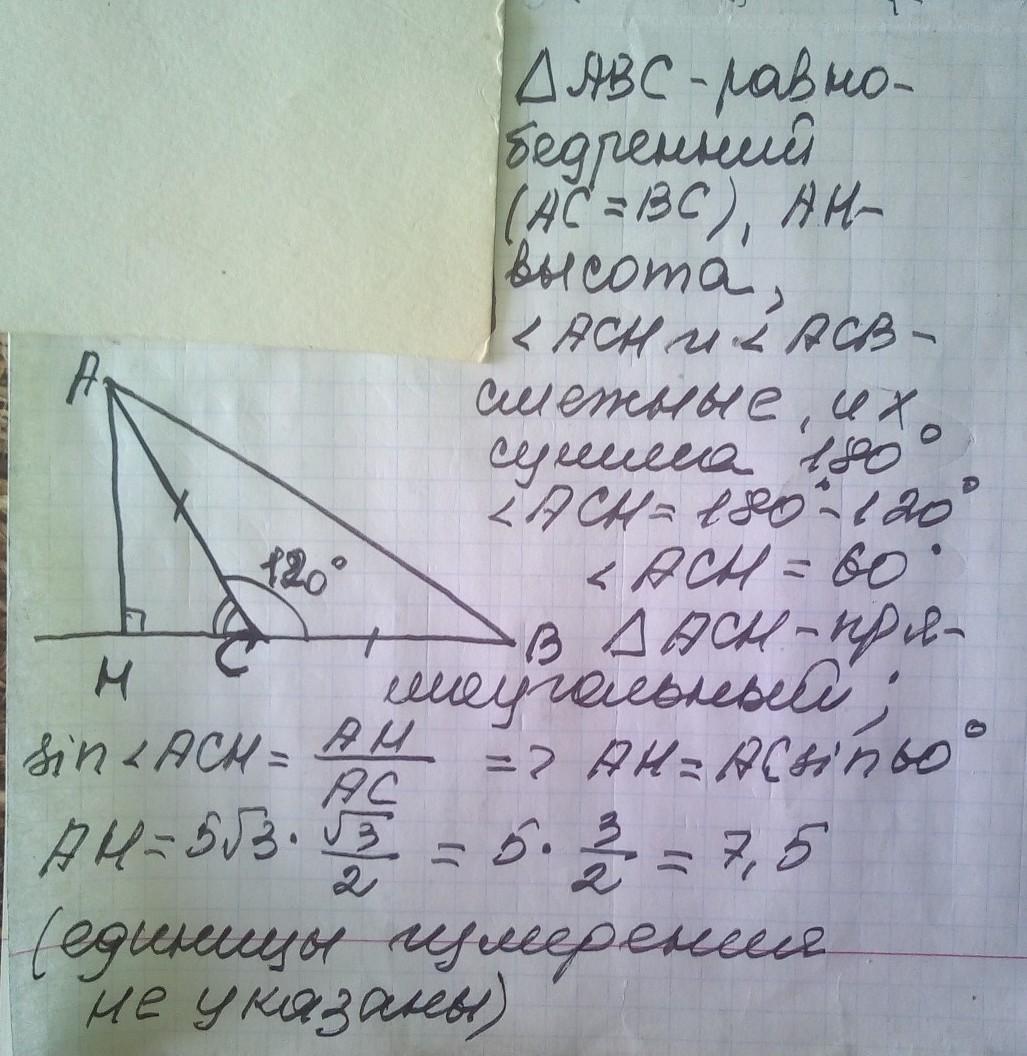 △ABC - равно-
бедренний
(AC = BC), AH-
высота,
<ACH и <ACB-
смежные, их
сумма 180°
<ACH = 180° - 120°
<ACH = 60°
A
120°
H
C
B
△ACH - пря-
моугольный;
sin <ACH = AH/AC => AH = AC sin 60°
AH = 5√3 · √3/2 = 5 · 3/2 = 7,5
(единицы измерения
не указаны)